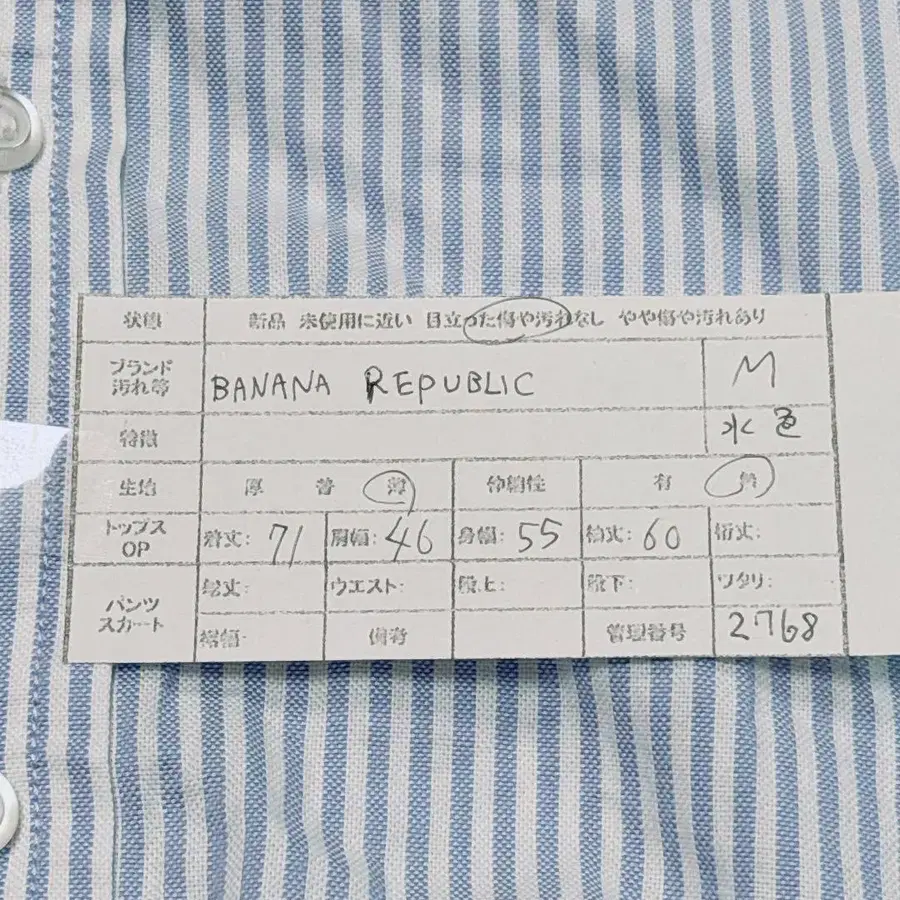 状態 新品 未使用に近い 目立った傷や汚れなし やや傷や汚れあり
ブランド
汚れ等 BANANA REPUBLIC M
特徴 水色
生地 厚 普 薄 伸縮性 有 無
トップス
OP 着丈: 71 肩幅: 46 身幅: 55 袖丈: 60 裄丈:
パンツ
スカート 総丈: ウエスト: 股上: 股下: ワタリ:
裾幅: 備考 管理番号 2768